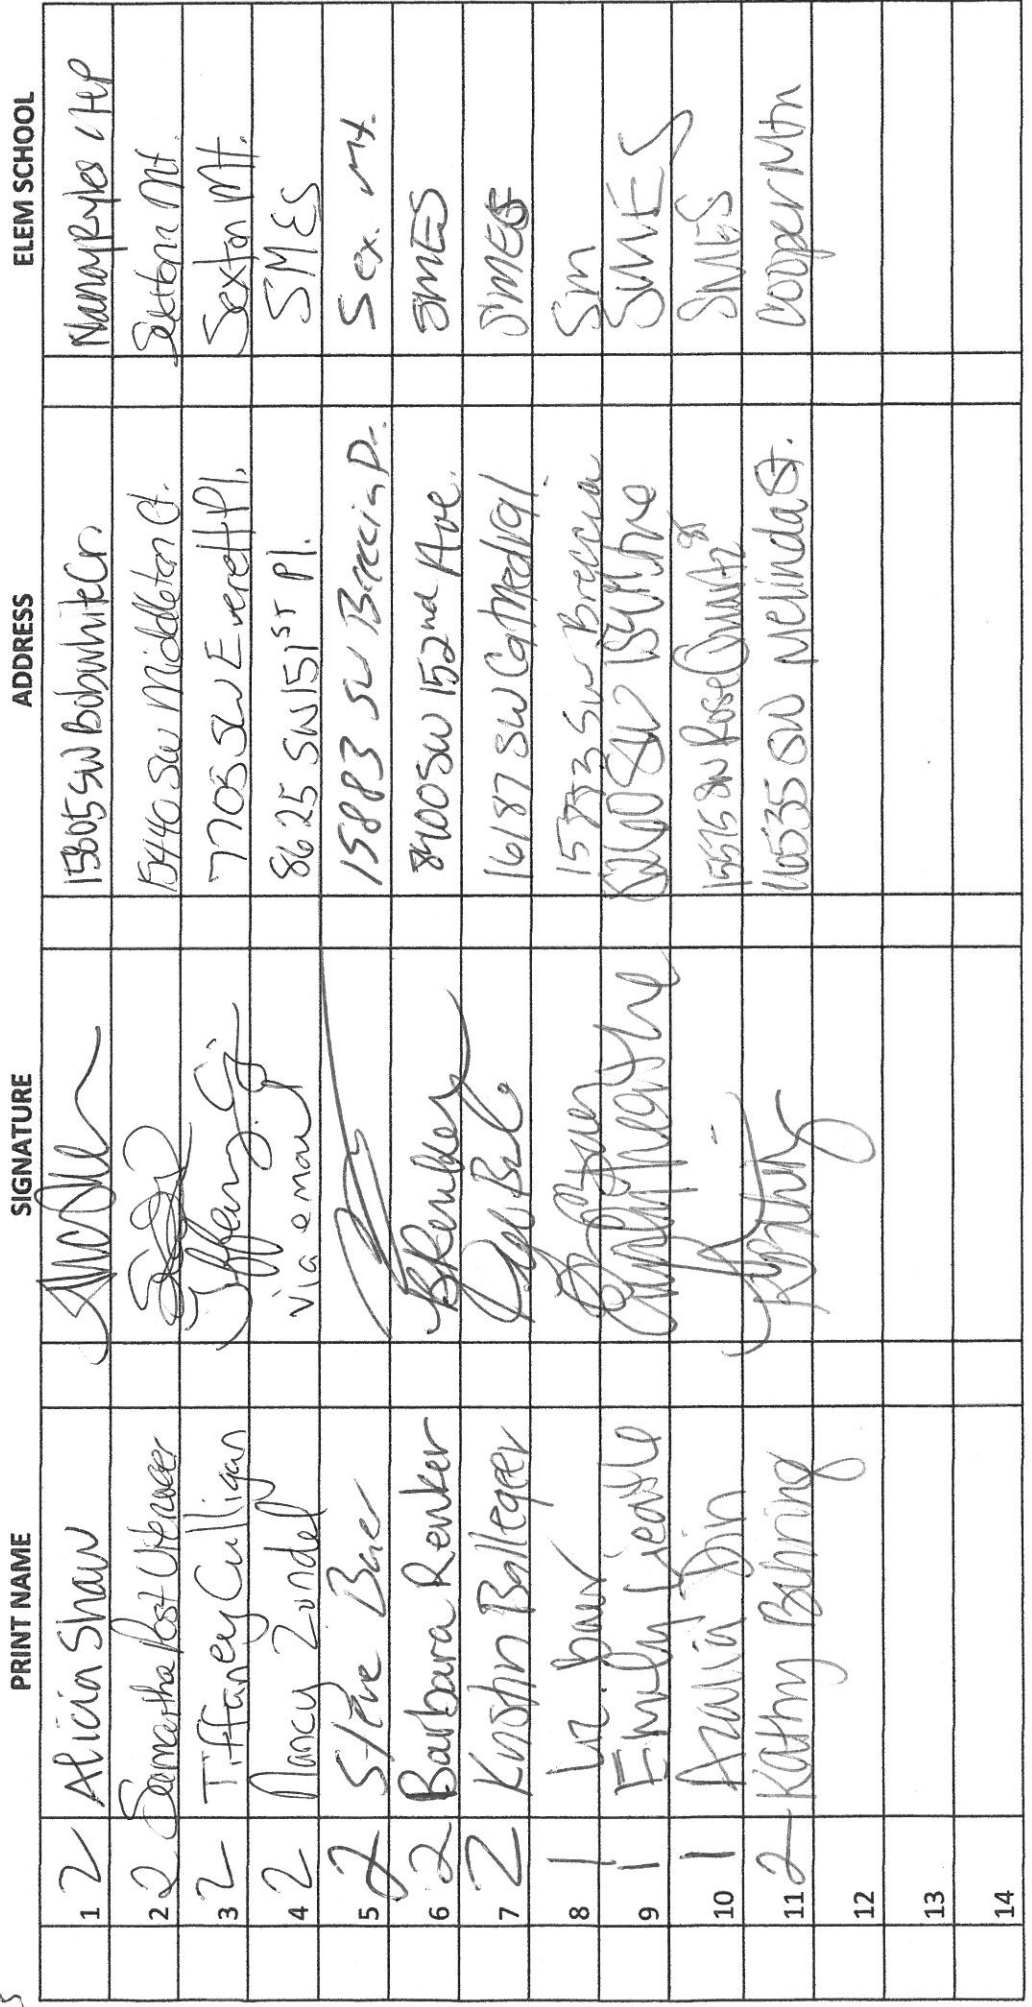 PRINT NAME SIGNATURE ADDRESS ELEM SCHOOL
1 2 Alicia Shaw 15805 SW Bobwhite Cr. Nancy Ryles
2 2 Samantha Post 15440 SW Middleton Ct. Sexton Mt.
3 2 Tiffaney Culligan 7705 SW Everett Pl. Sexton Mt.
4 2 Nancy Zundel via email 8625 SW 151ST Pl. SMES
5 2 Steve 15883 SW Breccia Dr. Sex. Mt.
6 2 Barbara Renker BRenker 8400 SW 152nd Ave. SMES
7 2 Kristin Balleger 16187 SW SMES
8 1 SW Breccia Sm
9 1 Emily SW SMES
10 1 Azalia Din 15575 SW Rose Quartz SMES
11 2 Kathy Bahring 16535 SW Nelinda St. Cooper Mtn
12
13
14